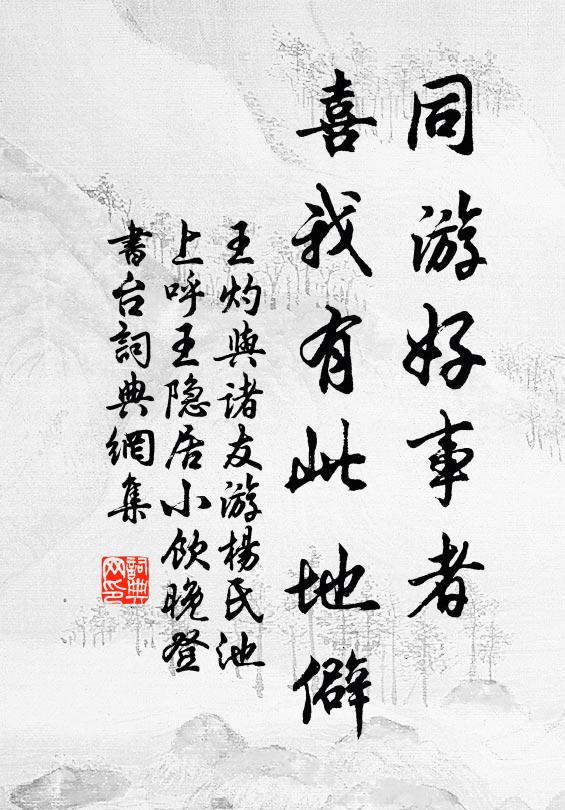 同游好事者
喜我有此地僻
王灼與诸友游楊氏池
上呼王隐居小飲晚登
書台詞典網集
詞典
网印